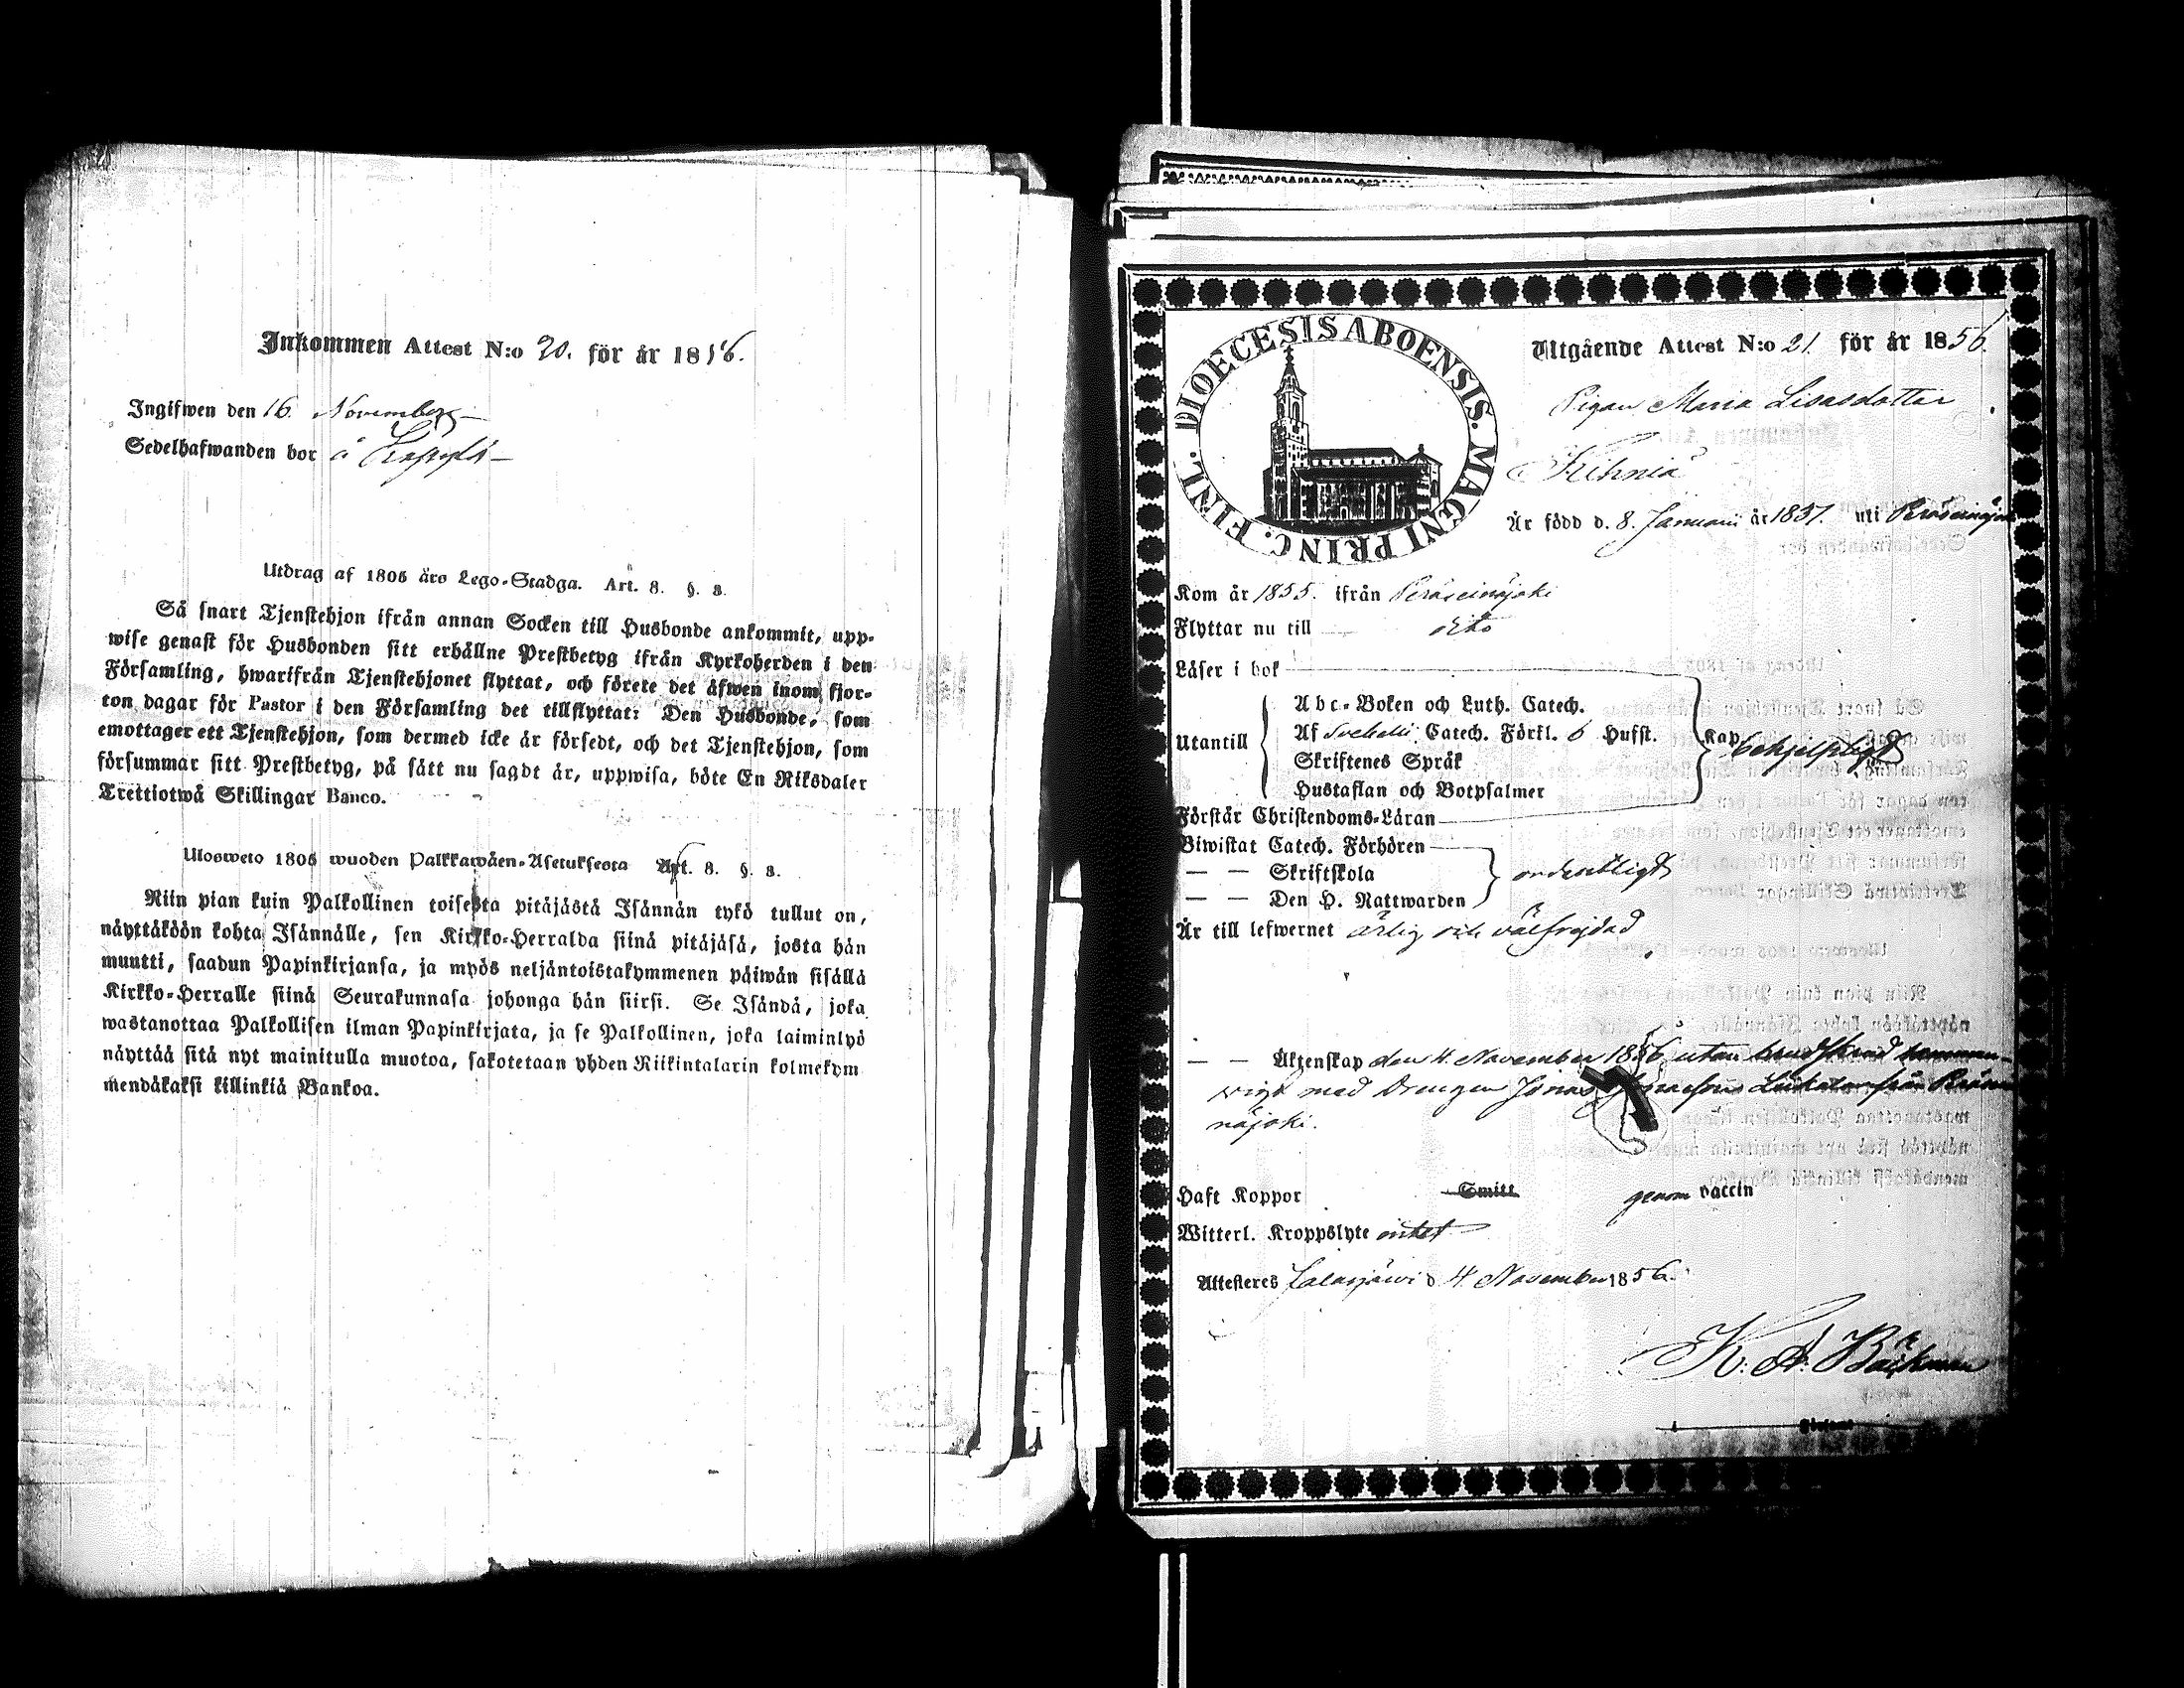 Inkommen Attest N:o 20. för år 1856.
Ingifwen den 16. November
Sedelhafwanden bor å
Utdrag af 1805 års Lego-Stadga. Art. 8. §. 3.
Så snart Tjenstehjon ifrån annan Socken till Husbonde ankommit, upp-
wise genast för Husbonden sitt erhållne Prestbetyg ifrån Kyrkoherden i den
Församling, hwarifrån Tjenstehjonet flyttat, och förete det äfwen inom fjor-
ton dagar för Pastor i den Församling det tillflyttat: Den Husbonde, som
emottager ett Tjenstehjon, som dermed icke är försedt, och det Tjenstehjon, som
försummar sitt Prestbetyg, på sätt nu sagdt är, uppwisa, böte En Riksdaler
Trettiotwå Skillingar Banco.
Ulosweto 1805 wuoden Palkkawäen-Asetuksesta Art. 8. §. 3.
Niin pian kuin Palkollinen toisesta pitäjästä Isännän tykö tullut on,
näyttäköön kohta Isännälle, sen Kirkko-Herralda siinä pitäjäsä, josta hän
muutti, saadun Papinkirjansa, ja myös neljäntoistakymmenen päiwän sisällä
Kirkko-Herralle siinä Seurakunnasa johonga hän siirsi. Se Isändä, joka
wastanottaa Palkollisen ilman Papinkirjata, ja se Palkollinen, joka laiminlyö
näyttää sitä nyt mainitulla muotoa, sakotetaan yhden Riikintalarin kolmekym
mendäkaksi killinkiä Bankoa.
DIOECESIS ABOENSIS. MAGNI PRINC. FINL.
Utgående Attest N:o 21. för år 1856.
Pigan Maria Lisasdotter
Kihniä
Är född d. 8. Januarii år 1831. uti Peräseinäjoki
Kom år 1855. ifrån Peräseinäjoki
Flyttar nu till dito
Läser i bok
Utantill
Abc-Boken och Luth. Catech.
Af Svebelii Catech. Förkl. 6 Hufst. Kap. behjelpligt
Skriftenes Språk
Hustaflan och Botpsalmer
Förstår Christendoms-Läran
Biwistat Catech. Förhören
— — Skriftskola ordentligt
— — Den H. Nattwarden
Är till lefwernet ärlig och välfrejdad
— — Äktenskap den 4. November 1856 utan brudskrud samman-
vigd med Drengen Jonas från Peräsei-
näjoki.
Haft Koppor Smitt genom vaccin
Witterl. Kroppslyte intet
Attesteres Jalasjärvi d. 4. November 1856.
K. A. Bäckman